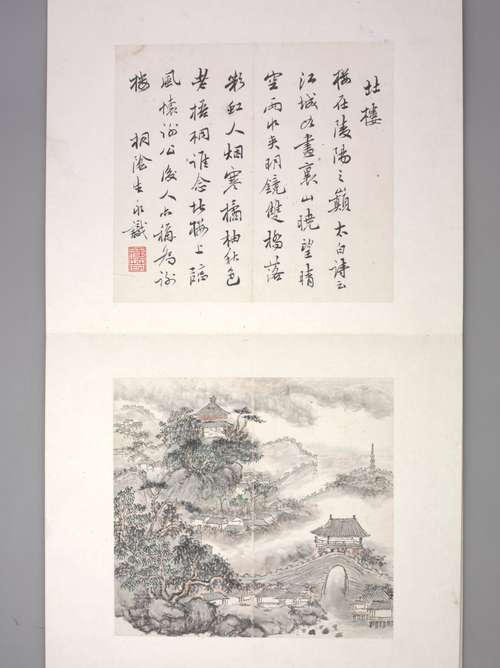 北樓
樓在陵陽之巔太白詩云
江城如畫裏山曉望晴
空兩水夾明鏡雙橋落
彩虹人烟寒橘柚秋色
老梧桐誰念北樓上臨
風懷謝公後人亦稱為謝
樓　桐陰生永識